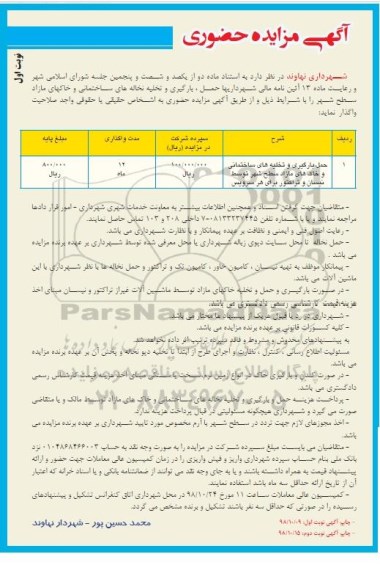 آگهی مزایده حضوری
نوبت اول
شهرداری نهاوند در نظر دارد به استناد ماده دو از یکصد و شصت و پنجمین جلسه شورای اسلامی شهر
و رعایت ماده ۱۳ آئین نامه مالی شهرداریها حمل ، بارگیری و تخلیه نخاله های ساختمانی و خاکهای مازاد
سطح شهر را با شرایط ذیل و از طریق آگهی مزایده حضوری به اشخاص حقیقی یا حقوقی واجد صلاحیت
واگذار نماید:
ردیف شرح سپرده شرکت در مزایده (ریال) مدت واگذاری مبلغ پایه
۱ حمل بارگیری و تخلیه های ساختمانی ۱۰۰/۰۰۰/۰۰۰ ۱۲ ۸۰۰/۰۰۰
و خاک های مازاد سطح شهر توسط ریال ماه ریال
نیسان و تراکتور برای هر سرویس
- متقاضیان جهت گرفتن اسناد و همچنین اطلاعات بیشتر به معاونت خدمات شهری شهرداری - امور قرار دادها
مراجعه نمایند و یا با شماره تلفن ۷-۰۸۱۳۳۲۳۷۴۴۵ داخلی ۲۰۸ و ۱۰۳ تماس حاصل نمایند.
- رعایت اصول فنی و ایمنی و نظافت بر عهده پیمانکار و با نظارت شهرداری می باشد.
- حمل نخاله تا محل سایت دپوی زباله شهرداری یا محل معرفی شده توسط شهرداری بر عهده برنده مزایده
می باشد .
- پیمانکار موظف به تهیه نیسان ، کامیون خاور ، کامیون تک و تراکتور و حمل نخاله ها با نظر شهرداری با این
ماشین آلات می باشد.
- در صورت بارگیری و حمل و تخلیه خاکهای مازاد توسط ماشین آلات غیراز تراکتور و نیسان مبنای اخذ
هزینه قیمت کارشناسی رسمی دادگستری می باشد.
- شهرداری در رد یا قبول هر یک از پیشنهاد ها مختار می باشد.
- کلیه کسورات قانونی بر عهده برنده مزایده می باشد.
به پیشنهادهای مخدوش و مشروط و فاقد سپرده ترتیب اثر داده نخواهد شد.
مسئولیت اطلاع رسانی ، کنترل ، نظارت و اجرای طرح از ابتدا تا تخلیه دپو نخاله و پخش آن بر عهده برنده مزایده
می باشد.
دادگستری می باشد.
- پرداخت هزینه حمل و بارگیری و تخلیه نخاله های ساختمانی و خاک های مازاد توسط مالک و یا متقاضی
صورت می گیرد و شهرداری هیچگونه مسئولیتی در قبال پرداخت هزینه ندارد.
- اخذ مجوزهای لازم جهت تردد در سطح شهر با آرم مخصوص مورد تایید شهرداری بر عهده برنده مزایده می
باشد.
- متقاضیان می بایست مبلغ سپرده شرکت در مزایده را به صورت وجه نقد به حساب ۰۱۰۴۸۶۸۴۶۶۰۰۳ نزد
بانک ملی بنام حساب سپرده شهرداری واریز و فیش واریزی را در زمان کمیسیون عالی معاملات جهت حضور و ارائه
پیشنهاد قیمت به همراه داشته باشند و یا به جای وجه نقد می توانند از ضمانتنامه بانکی و یا اسناد خزانه که اعتبار
آن از تاریخ ارائه حداقل سه ماه باشد استفاده نمایند.
- کمیسیون عالی معاملات ساعت ۱۱ مورخ ۹۸/۱۰/۲۴ در محل شهرداری اتاق کنفرانس تشکیل و پیشنهادهای
رسیده را در صورتی که حداقل سه نفر باشند تشکیل و برنده مشخص می گردد.
- چاپ آگهی نوبت اول: ۹۸/۱۰/۰۹
- چاپ آگهی نوبت دوم: ۹۸/۱۰/۱۵
محمد حسین پور - شهردار نهاوند